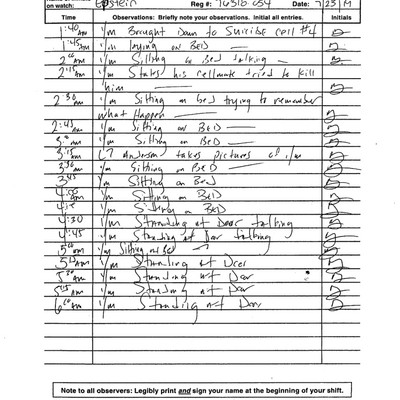 on watch): Epstein Reg #: 76318-054 Date: 7/23/19
Time Observations: Briefly note your observations. Initial all entries. Initials
1:40 Am I/m Brought Down to Suicide cell #4
1:45 Am I/m laying on BED
2:00 Am I/m Sitting on Bed talking
2:15 Am I/m States his cellmate tried to kill
him
2:30 Am I/m Sitting on bed trying to remember
what Happen
2:45 Am I/m Sitting on BED
3:00 Am I/m Sitting on BED
3:15 Am takes pictures of I/m
3:30 Am I/m Sitting on BED
3:45 Am I/m Sitting on Bed
4:00 Am I/m Sitting on BED
4:15 I/m Sitting on BED
4:30 I/m Standing at Door talking
4:45 Am I/m Standing at Door talking
5:00 Am I/m Sitting on Bed
5:15 Am I/m Standing at Door
5:30 Am I/m Standing at Door
5:45 Am I/m Standing at Door
6:00 Am I/m Standing at Door
Note to all observers: Legibly print and sign your name at the beginning of your shift.